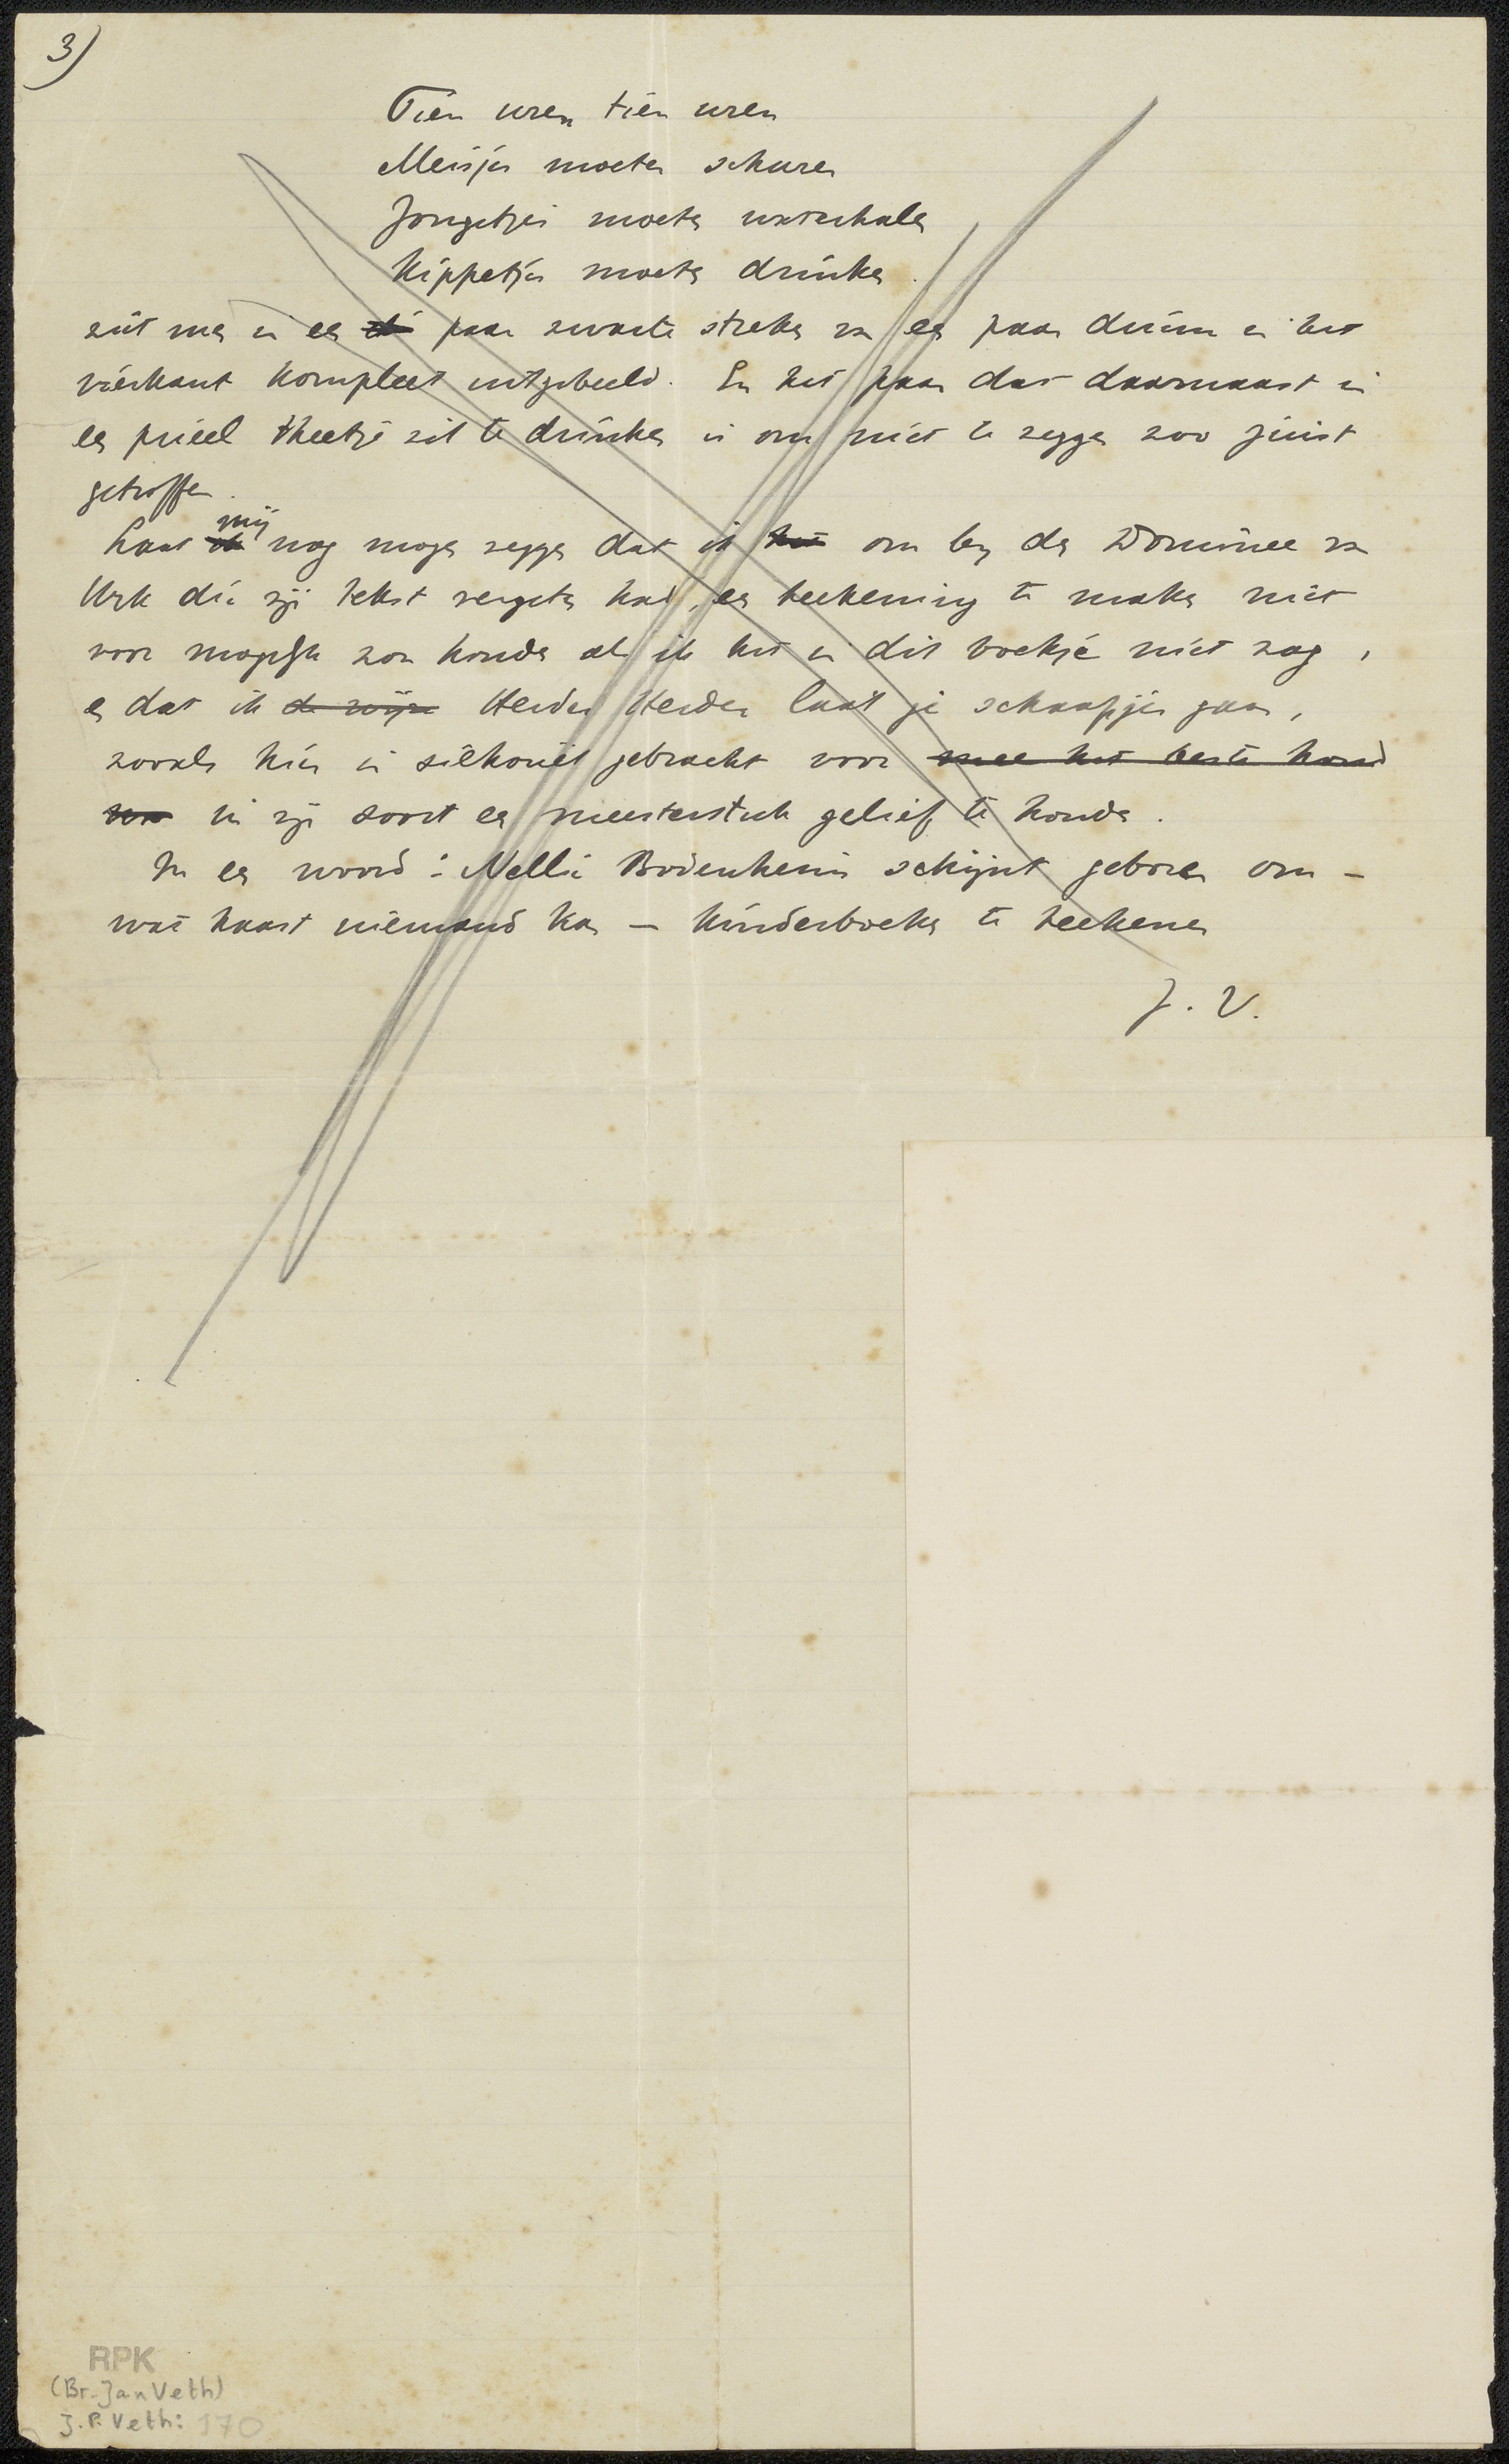 3)
Tien uren tien uren
Meisjes moeten schuren
Jongetjes moeten waterhalen
Kippetjes moeten drinken.
ziet men in een paar zwarte streken van een paar duim in het
vierkant kompleet uitgebeeld. En het paar dat daarnaast in
een prieel theetje zit te drinken is om niet te zeggen zoo juist
getroffen.
Laat mij nog mogen zeggen dat ik het om bij den Dominee van
Urk die zijn tekst vergeten had, een teekening te maken niet
voor mogelijk zou houden als ik het in dit boekje niet zag,
en dat ik de wijze Herder Herder laat je schaapjes gaan,
zooals hier in silhouet gebracht voor mee het beste houd
van in zijn soort een meesterstuk gelief te houden.
In een woord: Nellie Bodenheim schijnt geboren om –
wat haast niemand kan – kinderboeken te teekenen
J. V.
RPK
(Br. Jan Veth)
J. P. Veth: 170